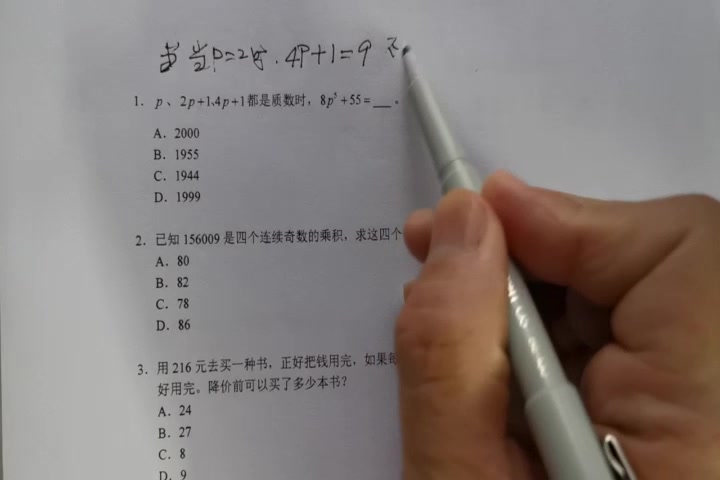 当 当P=2时. 4P+1=9 不
1. p、2p+1、4p+1都是质数时，8p⁵+55=__。
A. 2000
B. 1955
C. 1944
D. 1999
2. 已知156009是四个连续奇数的乘积，求这四个
A. 80
B. 82
C. 78
D. 86
3. 用216元去买一种书，正好把钱用完，如果每
好用完。降价前可以买了多少本书？
A. 24
B. 27
C. 8
D. 9